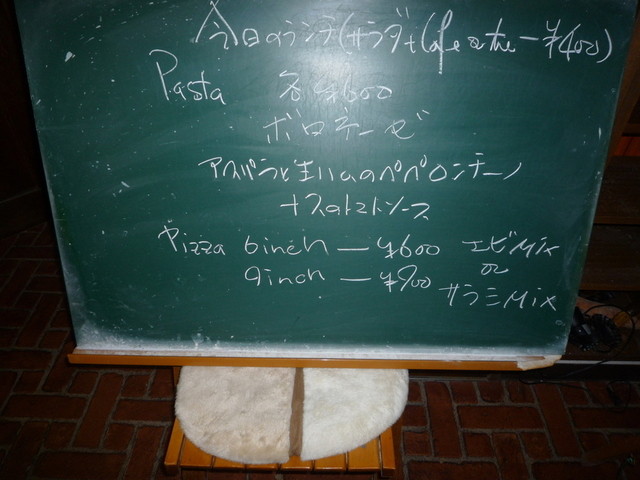 今日のランチ(サラダ+Cafe or the ー¥400)
Pasta 各¥600
ボロネーゼ
アスパラと生ハムのペペロンチーノ
ナスのトマトソース
Pizza 6inch ー ¥600 エビMix
or
9inch ー ¥900 サラミMix